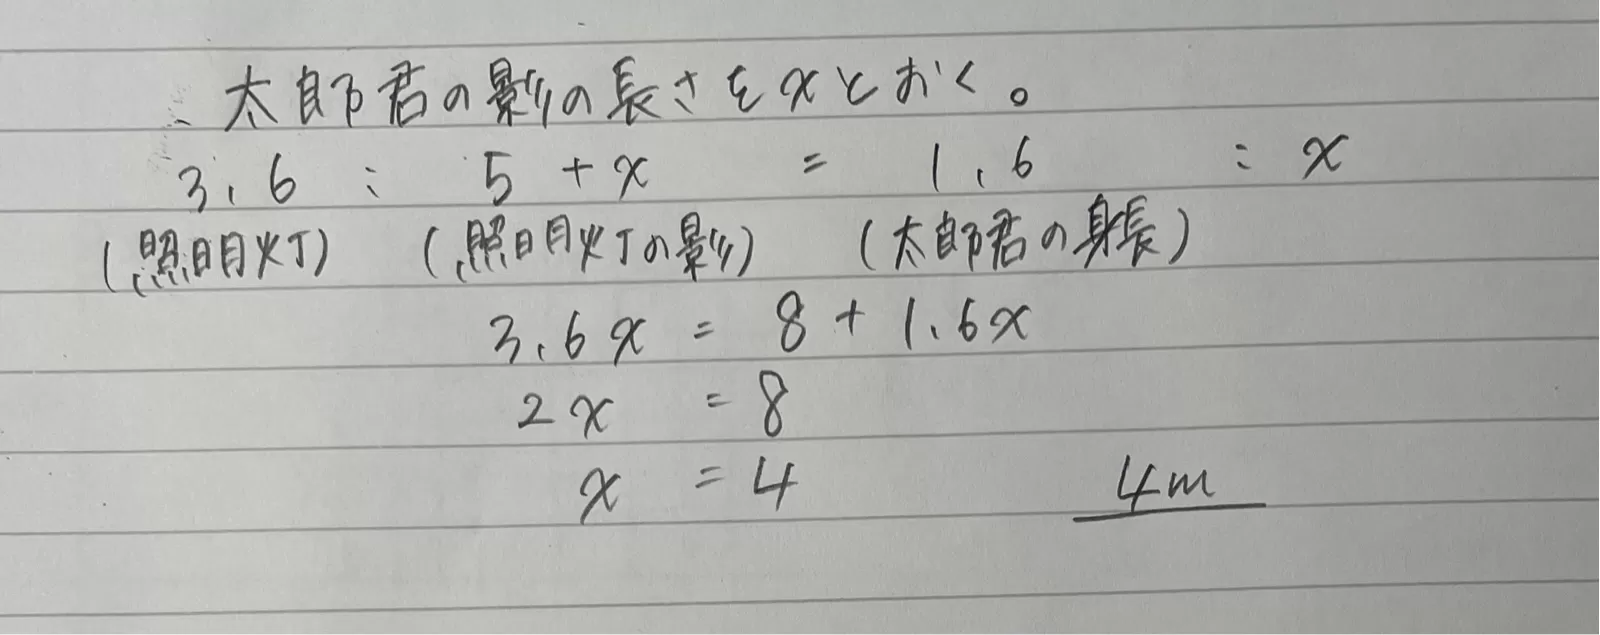 太郎君の影の長さをxとおく。
3.6 : 5 + x = 1.6 : x
(照明灯) (照明灯の影) (太郎君の身長)
3.6x = 8 + 1.6x
2x = 8
x = 4 4m